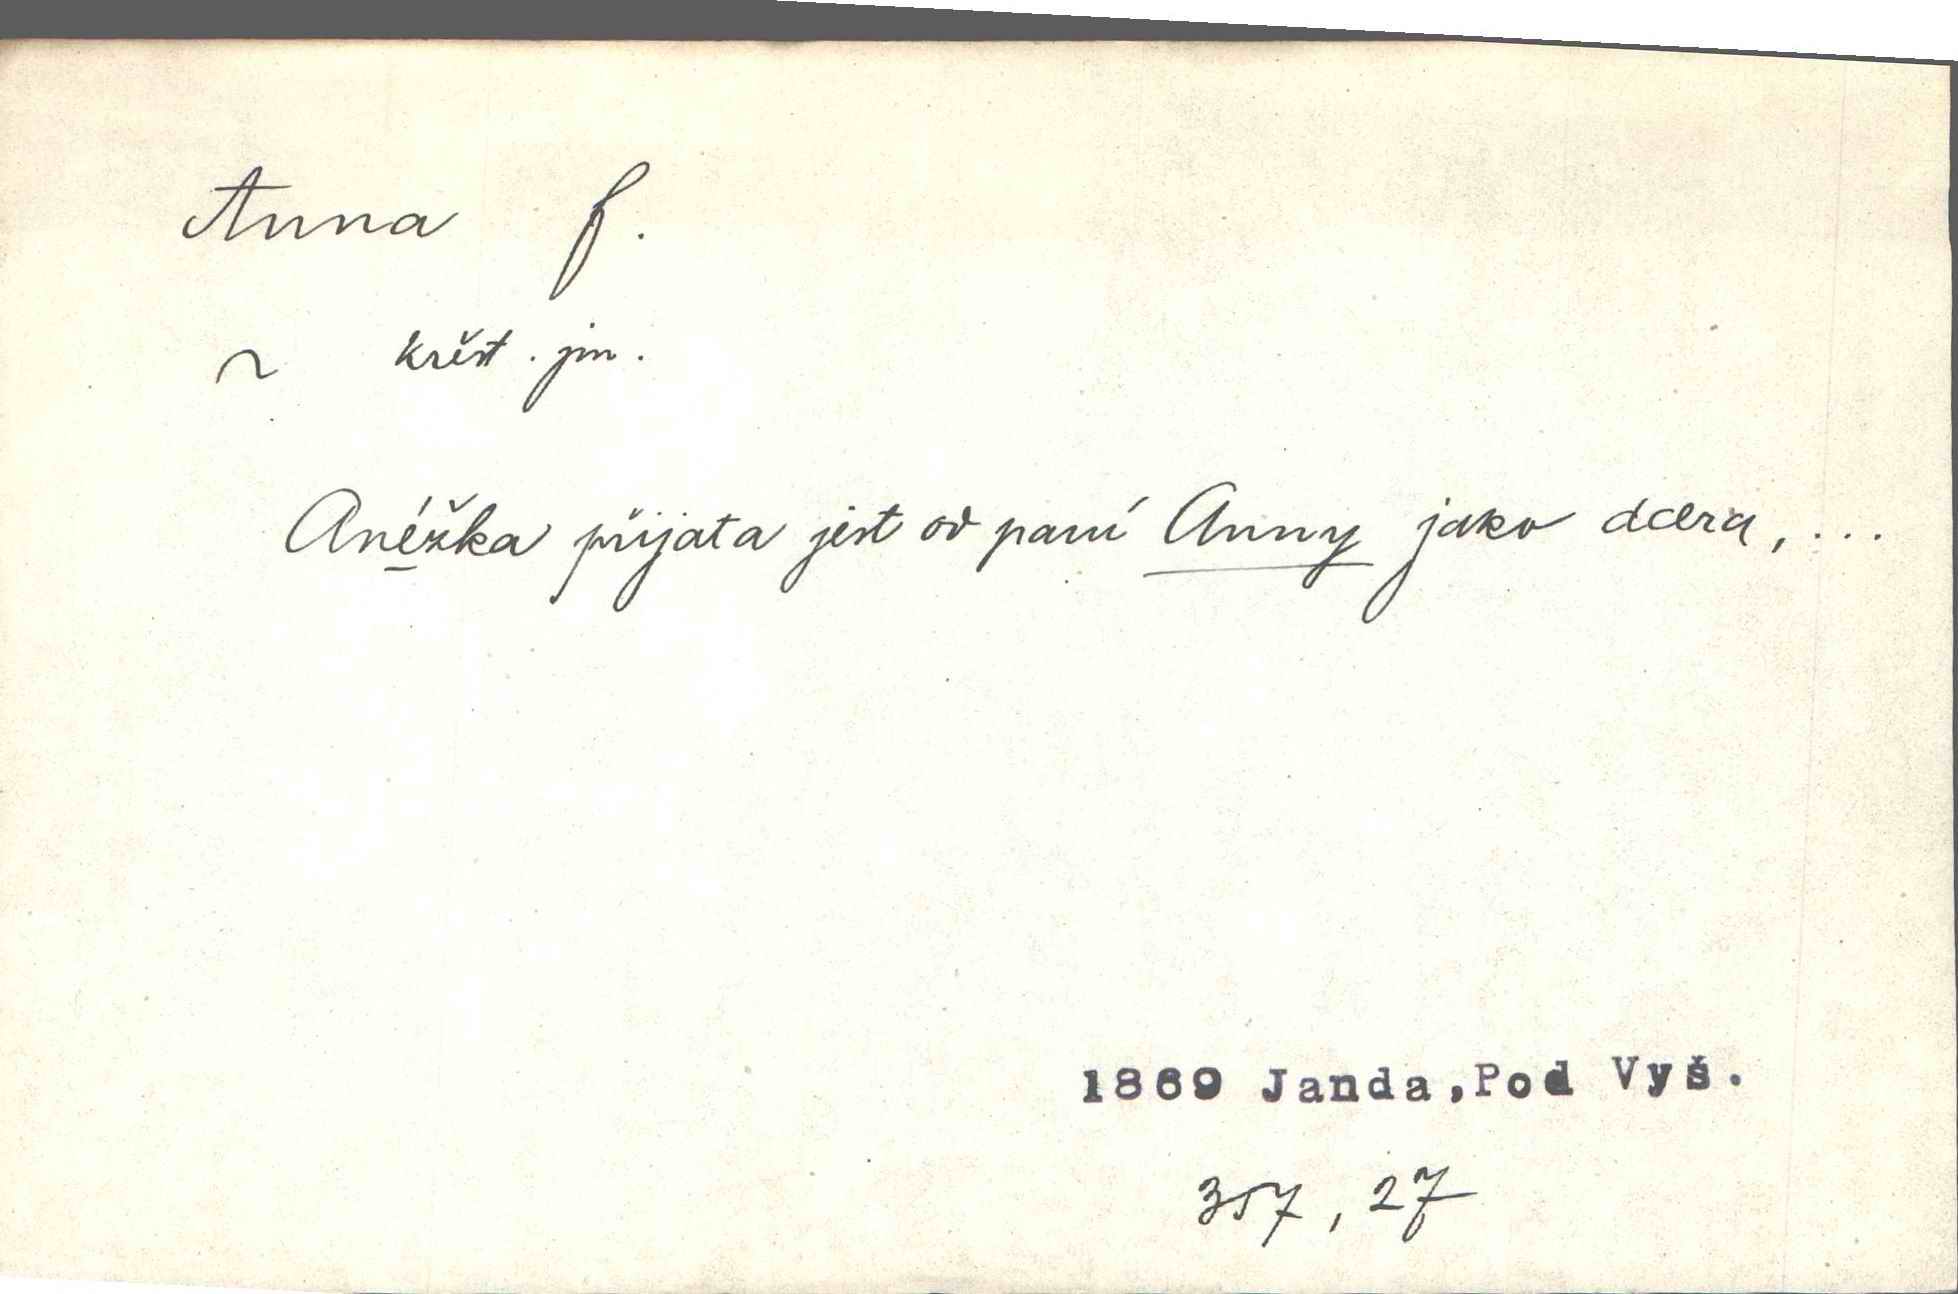 Anna f.
~ křest. jm.
Anéžka přijata jest od paní Anny jako dcera, ...
1869 Janda,Pod Vyš.
357, 27